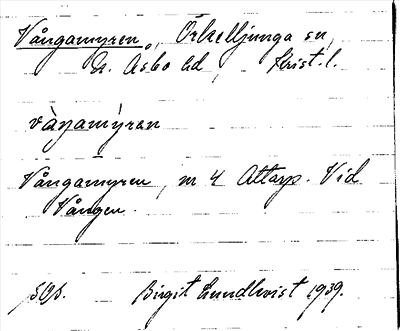 Vångamyren, Örkelljunga sn,
N. Åsbo hd, Krist. l.
vàŋamýren
Vångamyren, nr 4 Attarp. Vid
Vången.
Birgit Lundkvist 1939.